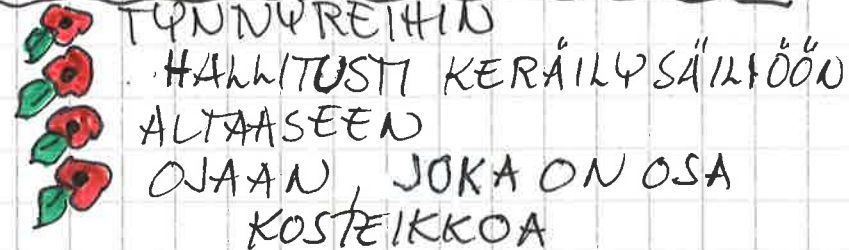 TYNNYREIHIN
HALLITUSTI KERÄILYSÄILIÖÖN
ALTAASEEN
OJAAN, JOKA ON OSA
KOSTEIKKOA